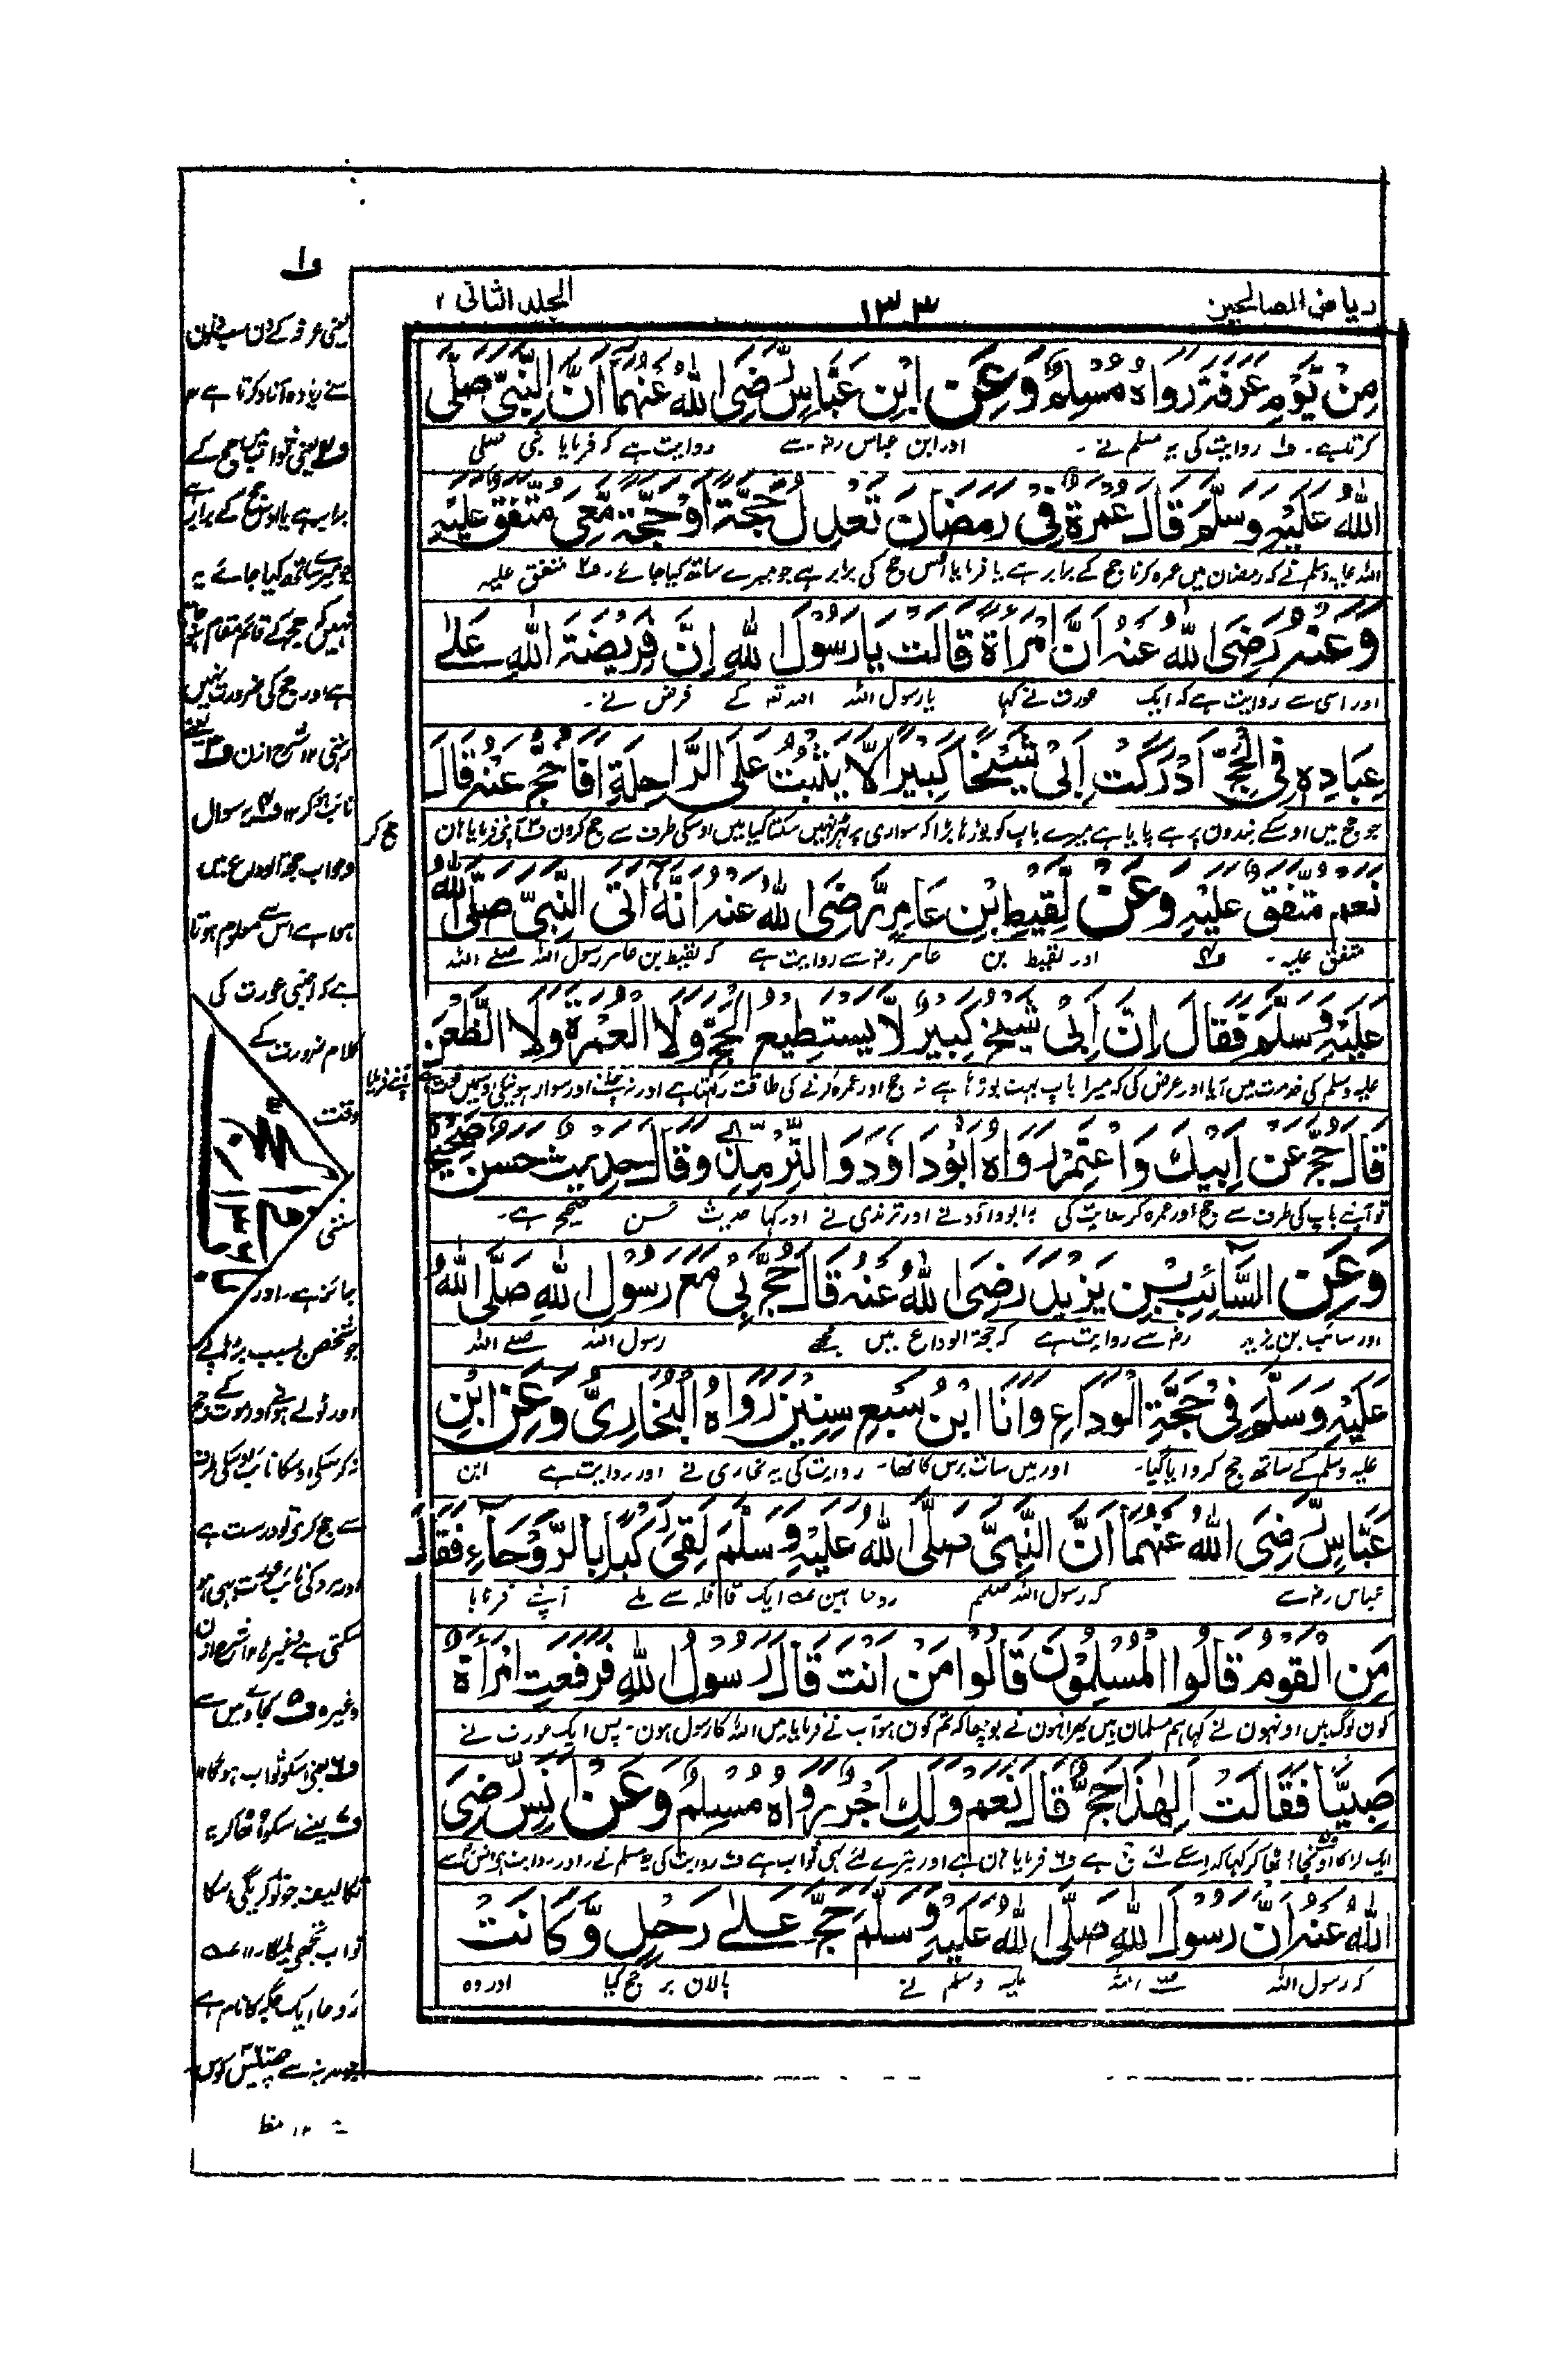 ریاض الصالحین
۱۳۰۳
الجلد الثانی ۲
مِنْ يَّوْمِ عَرَفَةَ رَوَاهُ مُسْلِمٌ وَعَنِ ابْنِ عَبَّاسٍ رَّضِيَ اللهُ عَنْهُمَا أَنَّ النَّبِيَّ صَلَّى
کرتا ہے۔ ف۱ روایت کی یہ مسلم نے۔ اور ابن عباس رض سے روایت ہے کہ فرمایا نبی صلی
اللهُ عَلَيْهِ وَسَلَّمَ قَالَ عُمْرَةٌ فِي رَمَضَانَ تَعْدِلُ حَجَّةً أَوْ حَجَّةً مَّعِيَ مُتَّفَقٌ عَلَيْهِ
اللہ علیہ وسلم نے کہ رمضان میں عمرہ کرنا حج کے برابر ہے یا فرمایا اُس حج کی برابر ہے جو میرے ساتھ کیا جائے۔ ف۲ متفق علیہ
وَعَنْهُ رَضِيَ اللهُ عَنْهُ أَنَّ امْرَأَةً قَالَتْ يَا رَسُوْلَ اللهِ إِنَّ فَرِيْضَةَ اللهِ عَلٰى
اور اسی سے روایت ہے کہ ایک عورت نے کہا یا رسول اللہ اللہ تعہ کے فرض نے۔
عِبَادِهِ فِي الْحَجِّ أَدْرَكَتْ أَبِيْ شَيْخًا كَبِيْرًا لَّا يَثْبُتُ عَلَى الرَّاحِلَةِ أَفَأَحُجُّ عَنْهُ قَالَ
جو حج میں اوسکے بندون پر ہے پایا ہے میرے باپ کو بوڑہا بڑا کہ سواری پر ٹھہر نہیں سکتا کیا میں اوسکی طرف سے حج کرون ف۳ آپنی فرمایا ہان
حج کر
نَعَمْ مُتَّفَقٌ عَلَيْهِ وَعَنْ لَّقِيْطِ بْنِ عَامِرٍ رَّضِيَ اللهُ عَنْهُ أَنَّهُ أَتَى النَّبِيَّ صَلَّى اللهُ
متفق علیہ۔ ف۴ اور لقیط بن عامر رض سے روایت ہے کہ لقیط بن عامر رسول اللہ صلے اللہ
عَلَيْهِ وَسَلَّمَ فَقَالَ إِنَّ أَبِيْ شَيْخٌ كَبِيْرٌ لَّا يَسْتَطِيْعُ الْحَجَّ وَلَا الْعُمْرَةَ وَلَا الظَّعْنَ
علیہ وسلم کی خدمت میں آیا اور عرض کی کہ میرا باپ بہت بوڑہا ہے نہ حج اور عمرہ کرنے کی طاقت رکہتا ہے اور نہ چلنے اور سوار ہونیکی
قَالَ حُجَّ عَنْ أَبِيْكَ وَاعْتَمِرْ رَوَاهُ أَبُوْدَاوٗدَ وَالتِّرْمِذِيُّ وَقَالَ حَدِيْثٌ حَسَنٌ صَحِيْحٌ
تو اپنے باپ کی طرف سے حج اور عمرہ کر روایت کی یہ ابو داؤد نے اور ترمذی نے اور کہا حدیث حسن صحیح ہے۔
وَعَنِ السَّائِبِ بْنِ يَزِيْدَ رَضِيَ اللهُ عَنْهُ قَالَ حُجَّ بِيْ مَعَ رَسُوْلِ اللهِ صَلَّى اللهُ
اور سائب بن یزید رض سے روایت ہے کہ حجۃ الوداع میں مجھے رسول اللہ صلے اللہ
عَلَيْهِ وَسَلَّمَ فِيْ حَجَّةِ الْوَدَاعِ وَأَنَا ابْنُ سَبْعِ سِنِيْنَ رَوَاهُ الْبُخَارِيُّ وَعَنِ ابْنِ
علیہ وسلم کے ساتھ حج کروایا گیا۔ اور میں سات برس کا تھا۔ روایت کی یہ بخاری نے اور روایت ہے ابن
عَبَّاسٍ رَّضِيَ اللهُ عَنْهُمَا أَنَّ النَّبِيَّ صَلَّى اللهُ عَلَيْهِ وَسَلَّمَ لَقِيَ رَكْبًا بِالرَّوْحَاءِ فَقَالَ
عباس رض سے کہ رسول اللہ صلعم روحا مین ف۵ ایک قافلہ سے ملے آپنے فرمایا
مَنِ الْقَوْمُ قَالُوا الْمُسْلِمُوْنَ قَالُوْا مَنْ أَنْتَ قَالَ رَسُوْلُ اللهِ فَرَفَعَتِ امْرَأَةٌ
کون لوگ ہیں اونہون نے کہا ہم مسلمان ہیں پھر انہون نے پوچھا کہ تم کون ہو آپ نے فرمایا میں اللہ کا رسول ہون۔ پس ایک عورت نے
صَبِيًّا فَقَالَتْ أَلِهٰذَا حَجٌّ قَالَ نَعَمْ وَلَكِ أَجْرٌ رَوَاهُ مُسْلِمٌ وَعَنْ أَنَسٍ رَّضِيَ
ایک لڑکا اونچا اٹھا کر کہا کہ اِسکے لئے حج ہے ف۶ فرمایا ہان ہے اور تیرے لئے بہی ثواب ہے ف۷ روایت کی یہ مسلم نے۔ اور روایت ہے انس رض سے
اللهُ عَنْهُ أَنَّ رَسُوْلَ اللهِ صَلَّى اللهُ عَلَيْهِ وَسَلَّمَ حَجَّ عَلٰى رَحْلٍ وَّكَانَتْ
کہ رسول اللہ صلے اللہ علیہ وسلم نے پالان پر حج کیا اور وہ
ف۱
یعنی عرفہ کے دن سب دنون
سے زیادہ آزاد کرتا ہے ۱۲
ف۲ یعنی ثواب میں حج کے
برابر ہے یا اوس حج کے برابر ہے
جو میرے ساتھ کیا جائے یہ
نہیں کہ حج کے قائم مقام
ہے اور حج کی ضرورت نہیں
رہتی ۱۲ شرح ازن ف۳ یعنے
نائب ہوکر ۱۲ ف۴ یہ سوال
وجواب حجۃ الوداع میں
ہوا ہے اس سے معلوم ہوتا
ہے کہ اجنبی عورت کی
کلام ضرورت کے
وقت
سننی
جائز ہے۔ اور
جو شخص بسبب بڑہاپے
اور
نہ کر سکے اوسکا نائب اوسکی طرف
سے حج کرے تو درست ہے
اور مرد کی نائب عورت بہی ہو
سکتی ہے
وغیرہ ف۵
ف۶ یعنی اسکو ثواب ہوگا ۱۲
ف۷ یعنے اسکو اٹھا کر یہ
تکالیف جو تو کریگی اسکا
ثواب تجھی ملیگا۔ ۱۲ ف۵
روحا ایک جگہ کا نام ہے
جو مدینہ سے چھتیس کوس
ہے ۱۲ منہ